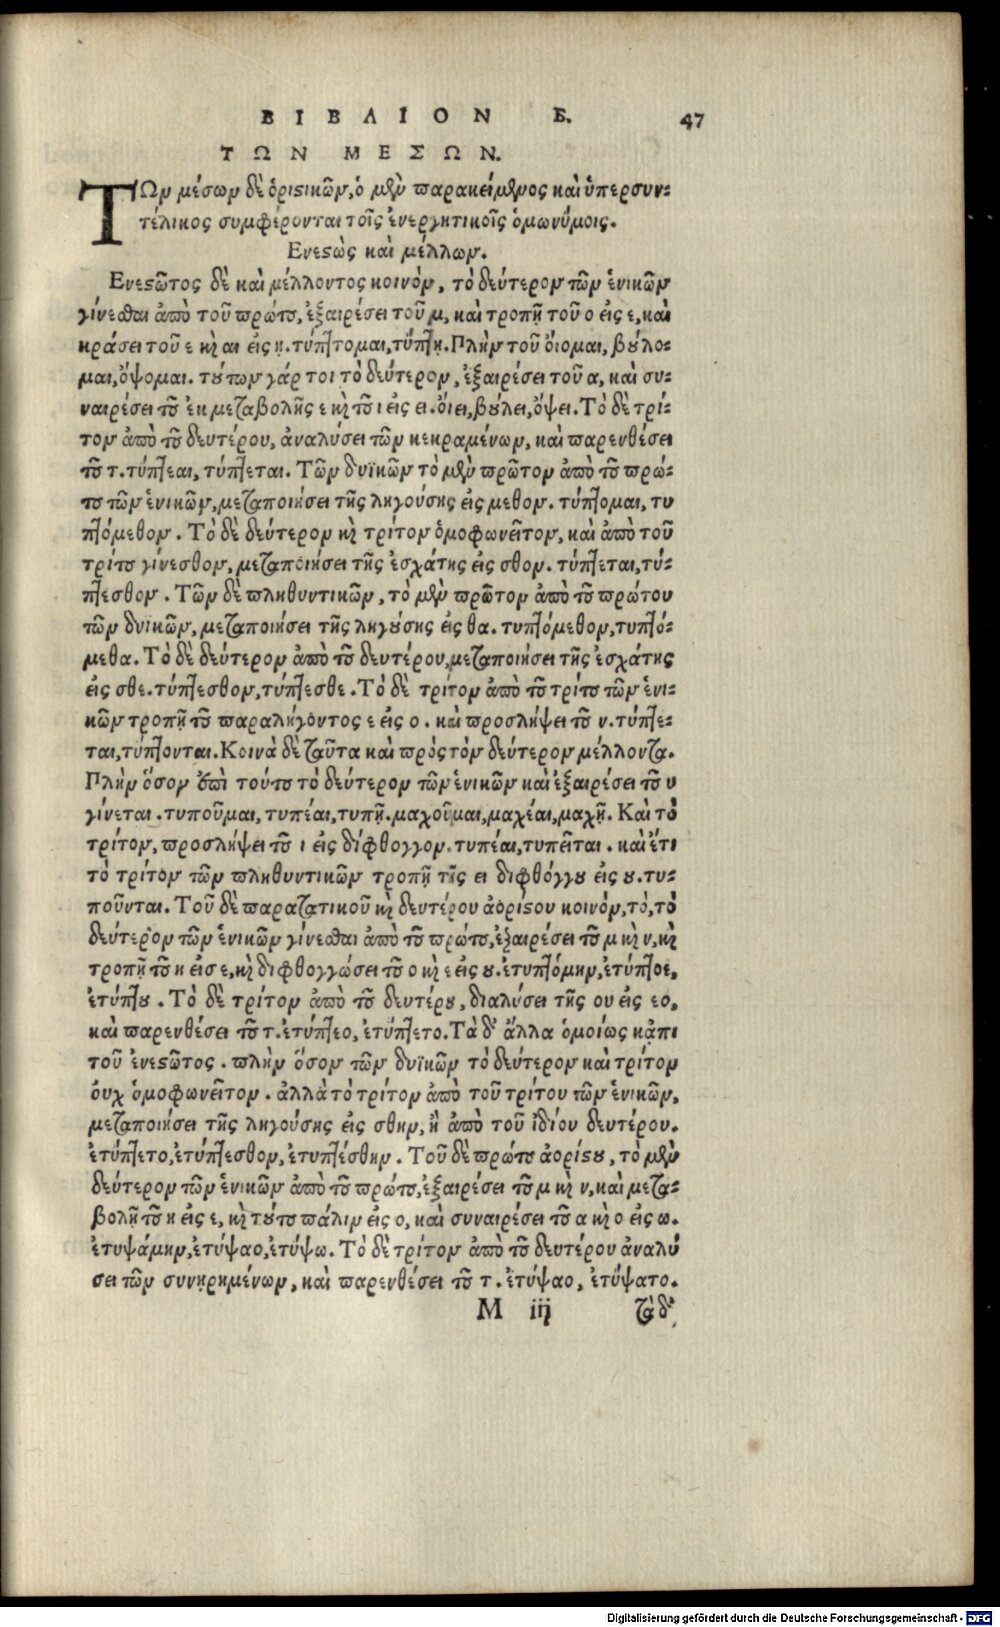 ΒΙΒΛΙΟΝ Ε. 47
ΤΩΝ ΜΕΣΩΝ.
ΤΩν μέσων δὲ ὁριστικῶν, ὁ μὲν παρακείμενος καὶ ὑπερσυν-
τέλικος συμφέρονται τοῖς ἐνεργητικοῖς ὁμωνύμοις.
Ενεστὼς καὶ μέλλων.
Ενεστῶτος δὲ καὶ μέλλοντος κοινὸν, τὸ δεύτερον τῶν ἑνικῶν
γίνεσθαι ἀπὸ τοῦ πρώτου, ἐξαιρέσει τοῦ μ, καὶ τροπῇ τοῦ ο εἰς ε, καὶ
κράσει τοῦ ε καὶ αι εἰς ῃ. τύπτομαι, τύπτῃ. Πλὴν τοῦ ὄιομαι, βούλο-
μαι, ὄψομαι. τούτων γάρ τοι τὸ δεύτερον, ἐξαιρέσει τοῦ α, καὶ συ-
ναιρέσει τοῦ ἐκ μεταβολῆς ε καὶ τοῦ ι εἰς ει. ὄιει, βούλει, ὄψει. Τὸ δὲ τρί-
τον ἀπὸ τοῦ δευτέρου, ἀναλύσει τῶν κεκραμένων, καὶ παρενθέσει
τοῦ τ. τύπτεαι, τύπτεται. Τῶν δυϊκῶν τὸ μὲν πρῶτον ἀπὸ τοῦ πρώ-
του τῶν ἑνικῶν, μεταποιήσει τῆς ληγούσης εἰς μεθον. τύπτομαι, τυ
πτόμεθον. Τὸ δὲ δεύτερον καὶ τρίτον ὁμοφωνεῖτον, καὶ ἀπὸ τοῦ
τρίτου γίνεσθον, μεταποιήσει τῆς ἐσχάτης εἰς σθον. τύπτεται, τύ-
πτεσθον. Τῶν δὲ πληθυντικῶν, τὸ μὲν πρῶτον ἀπὸ τοῦ πρώτου
τῶν δυϊκῶν, μεταποιήσει τῆς ληγούσης εἰς θα. τυπτόμεθον, τυπτό-
μεθα. Τὸ δὲ δεύτερον ἀπὸ τοῦ δευτέρου, μεταποιήσει τῆς ἐσχάτης
εἰς σθε. τύπτεσθον, τύπτεσθε. Τὸ δὲ τρίτον ἀπὸ τοῦ τρίτου τῶν ἑνι-
κῶν τροπῇ τοῦ παραλήγοντος ε εἰς ο. καὶ προσλήψει τοῦ ν. τύπτε-
ται, τύπτονται. Κοινὰ δὲ ταῦτα καὶ πρὸς τὸν δεύτερον μέλλοντα.
Πλὴν ὅσον ἐπὶ τούτου τὸ δεύτερον τῶν ἑνικῶν καὶ ἐξαιρέσει τοῦ υ
γίνεται. τυποῦμαι, τυπέαι, τυπῇ. μαχοῦμαι, μαχέαι, μαχῇ. Καὶ τὸ
τρίτον, προσλήψει τοῦ ι εἰς δίφθογγον. τυπέαι, τυπεῖται. καὶ ἔτι
τὸ τρίτον τῶν πληθυντικῶν τροπῇ τῆς ει διφθόγγου εἰς ου. τυ-
ποῦνται. Τοῦ δὲ παρατατικοῦ καὶ δευτέρου ἀορίστου κοινὸν, τὸ, τὸ
δεύτερον τῶν ἑνικῶν γίνεσθαι ἀπὸ τοῦ πρώτου, ἐξαιρέσει τοῦ μ καὶ ν, καὶ
τροπῇ τοῦ η εἰς ε, καὶ διφθογγώσει τοῦ ο καὶ ε εἰς ου. ἐτυπτόμην, ἐτύπτοε,
ἐτύπτου. Τὸ δὲ τρίτον ἀπὸ τοῦ δευτέρου, διαλύσει τῆς ου εἰς εο,
καὶ παρενθέσει τοῦ τ. ἐτύπτεο, ἐτύπτετο. Τὰ δ' ἄλλα ὁμοίως κᾀπι
τοῦ ἐνεστῶτος. πλὴν ὅσον τῶν δυϊκῶν τὸ δεύτερον καὶ τρίτον
οὐχ ὁμοφωνεῖτον. ἀλλὰ τὸ τρίτον ἀπὸ τοῦ τρίτου τῶν ἑνικῶν,
μεταποιήσει τῆς ληγούσης εἰς σθην, ἢ ἀπὸ τοῦ ἰδίου δευτέρου.
ἐτύπτετο, ἐτύπτεσθον, ἐτυπτέσθην. Τοῦ δὲ πρώτου ἀορίστου, τὸ μὲν
δεύτερον τῶν ἑνικῶν ἀπὸ τοῦ πρώτου, ἐξαιρέσει τοῦ μ καὶ ν, καὶ μετα-
βολῇ τοῦ η εἰς ε, καὶ τούτου πάλιν εἰς ο, καὶ συναιρέσει τοῦ α καὶ ο εἰς ω.
ἐτυψάμην, ἐτύψαο, ἐτύψω. Τὸ δὲ τρίτον ἀπὸ τοῦ δευτέρου ἀναλύ
σει τῶν συνῃρημένων, καὶ παρενθέσει τοῦ τ. ἐτύψαο, ἐτύψατο.
M iij τὰ δ'
Digitalisierung gefördert durch die Deutsche Forschungsgemeinschaft - DFG